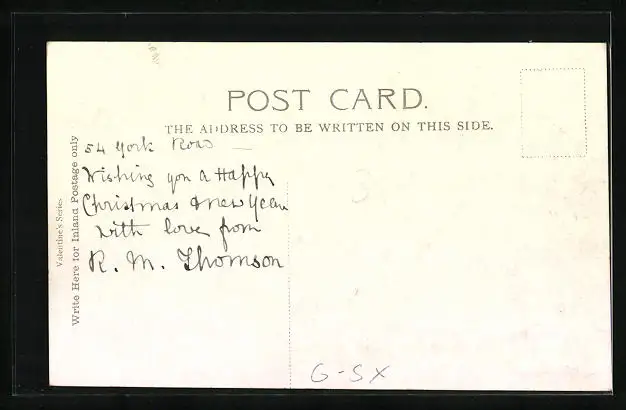 POST CARD.
THE ADDRESS TO BE WRITTEN ON THIS SIDE.
Valentine's Series
Write Here for Inland Postage only
54 York Road
Wishing you a Happy
Christmas & new Year
with love from
R. M. Thomson
G-SX